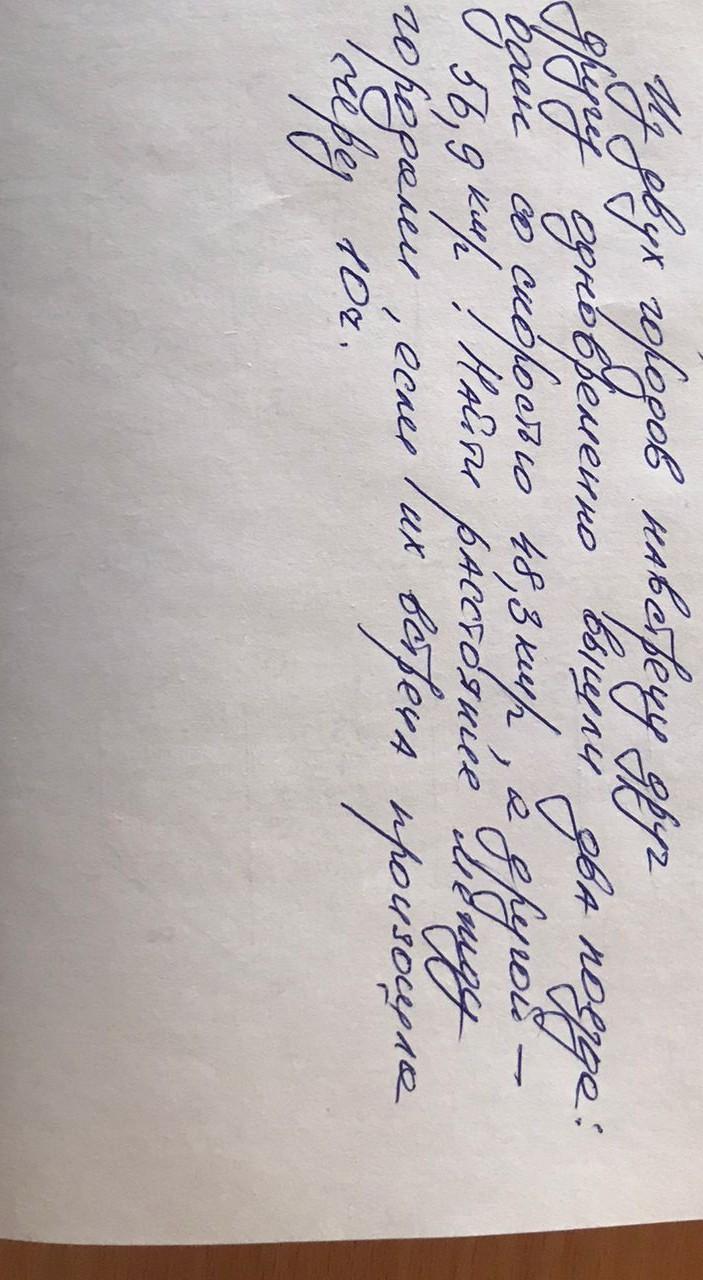 Из двух городов навстречу друг
другу одновременно вышли два поезда:
один со скоростью 48,3 км/ч, а другой –
56,9 км/ч. Найти расстояние между
городами, если их встреча произошла
через 10ч.